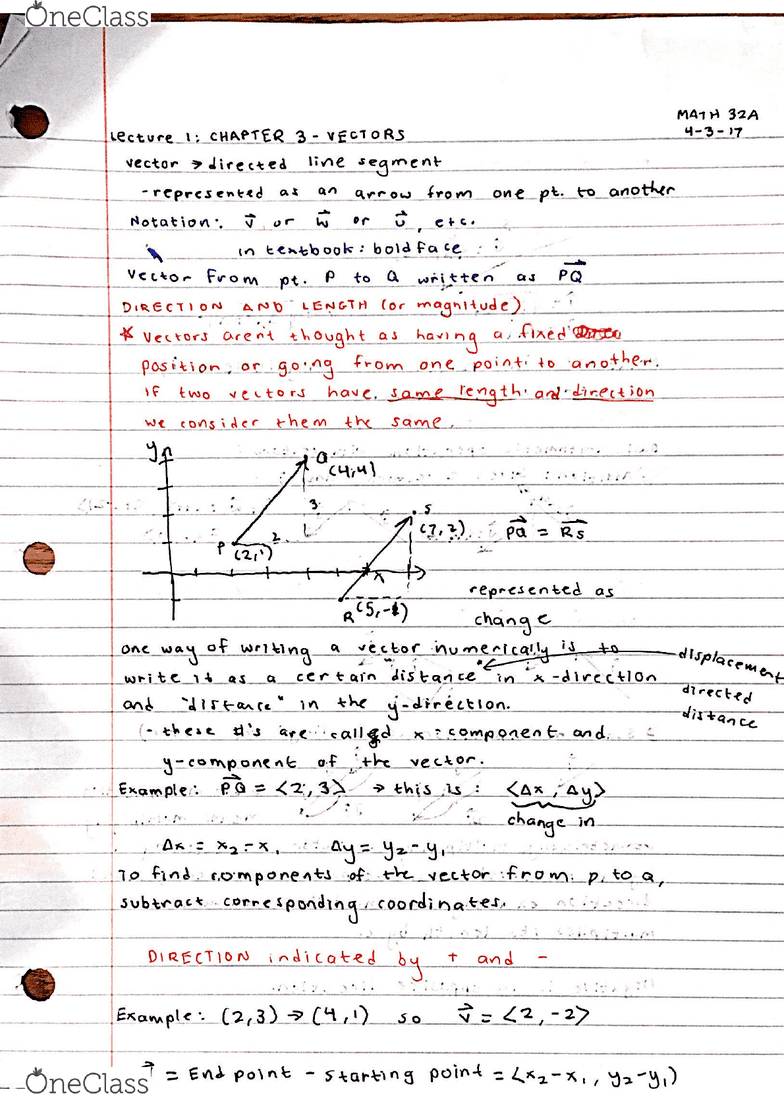 OneClass
MATH 32A
4-3-17
Lecture 1: CHAPTER 3 - VECTORS
vector → directed line segment
- represented as an arrow from one pt. to another
Notation: v⃗ or w⃗ or u⃗, etc.
in textbook: boldface
Vector from pt. P to Q written as PQ⃗
DIRECTION AND LENGTH (or magnitude)
* vectors aren't thought as having a fixed
position, or going from one point to another.
If two vectors have same length and direction
we consider them the same.
y
Q
(4,4)
3
S
P (2,1) 2
(7,2)
PQ⃗ = RS⃗
x
R (5,-1)
represented as
change
one way of writing a vector numerically is to
write it as a certain distance in x-direction
displacement
directed
distance
and "distance" in the y-direction.
- these #'s are called x-component and
y-component of the vector.
Example: PQ⃗ = <2,3> → this is: <Δx, Δy>
change in
Δx = x₂-x₁ Δy = y₂-y₁
To find components of the vector from p to Q,
subtract corresponding coordinates.
DIRECTION indicated by + and -
Example: (2,3) → (4,1) so v⃗ = <2,-2>
= End point - starting point = <x₂-x₁, y₂-y₁)
OneClass